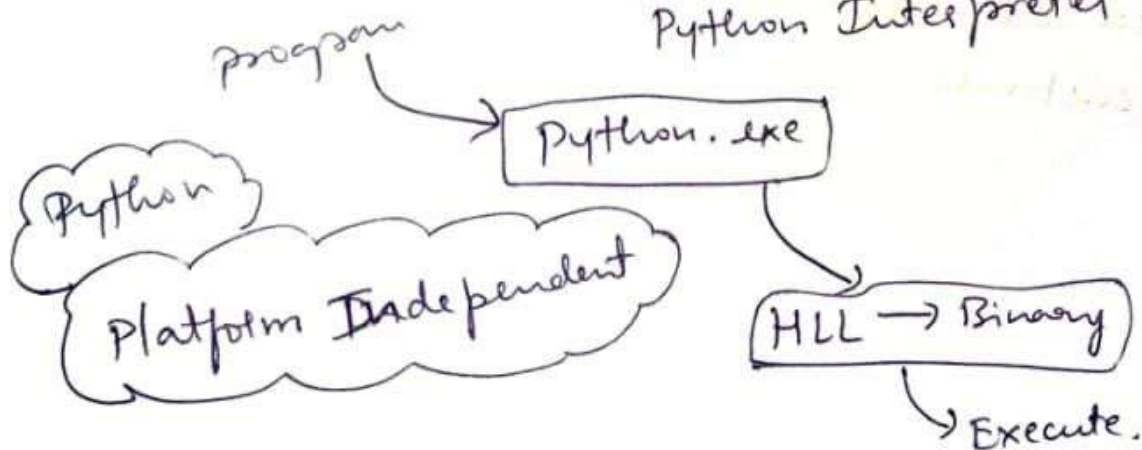 Python Interpreter
program
Python.exe
Python
Platform Independent
HLL → Binary
Execute.